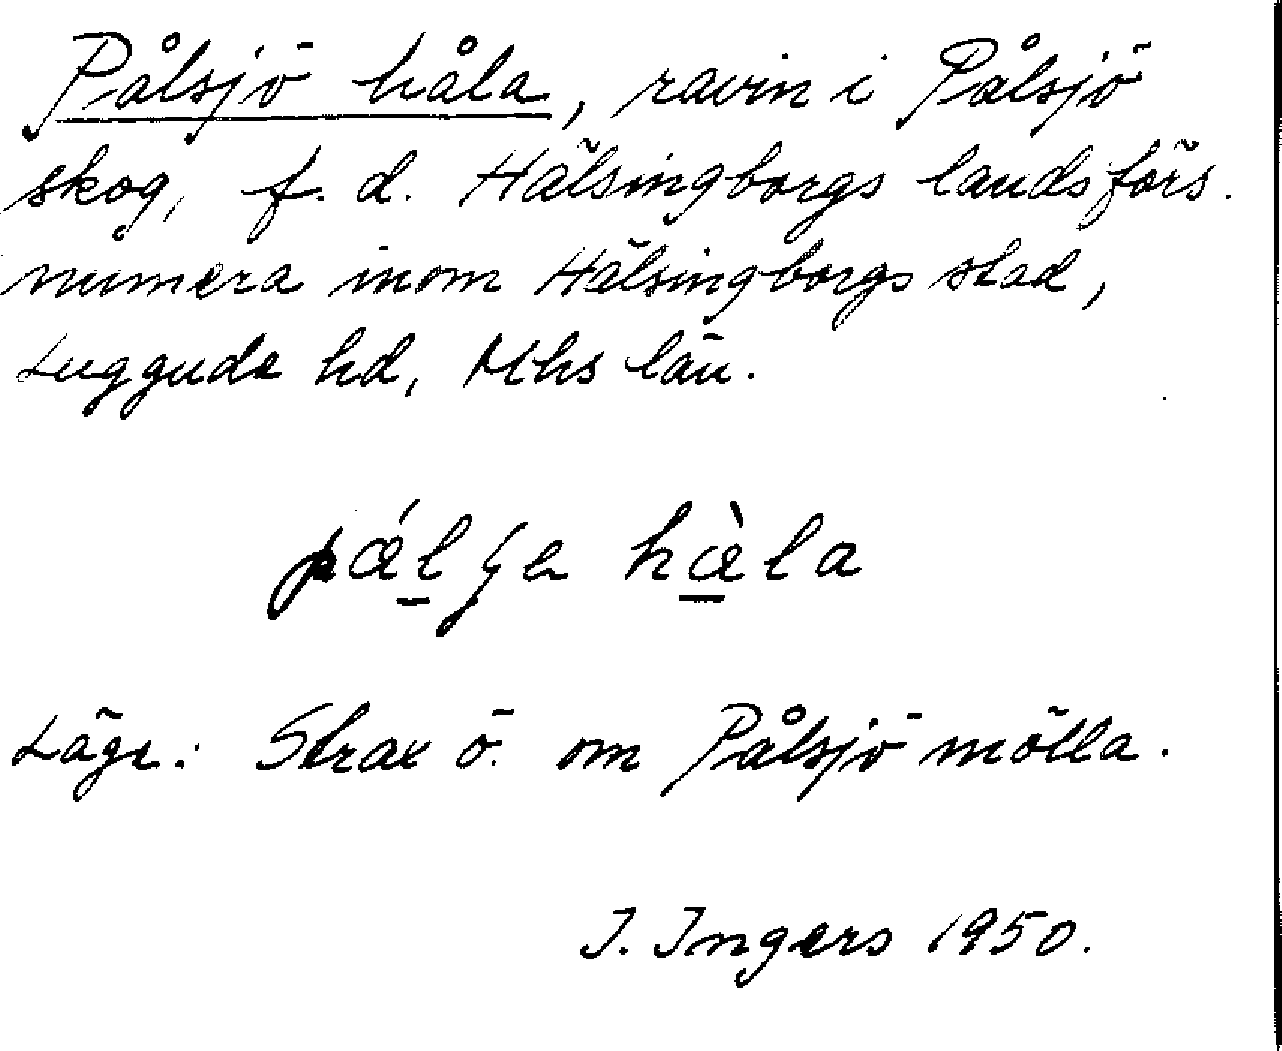 Pålsjö håla, ravin i Pålsjö
skog, f. d. Hälsingborgs landsförs.
numera inom Hälsingborgs stad,
Luggude hd, Mhs län.
hà̱la
Läge: Strax ö. om Pålsjö mölla.
I. Ingers 1950.